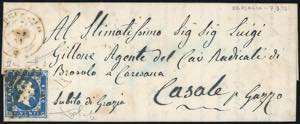 Al Stimatissimo Sig Sig Luigi
Gillone Agente del Cav Radicati di
Brozolo a Caresana
Subito di Grazia
Casale p Gazzo